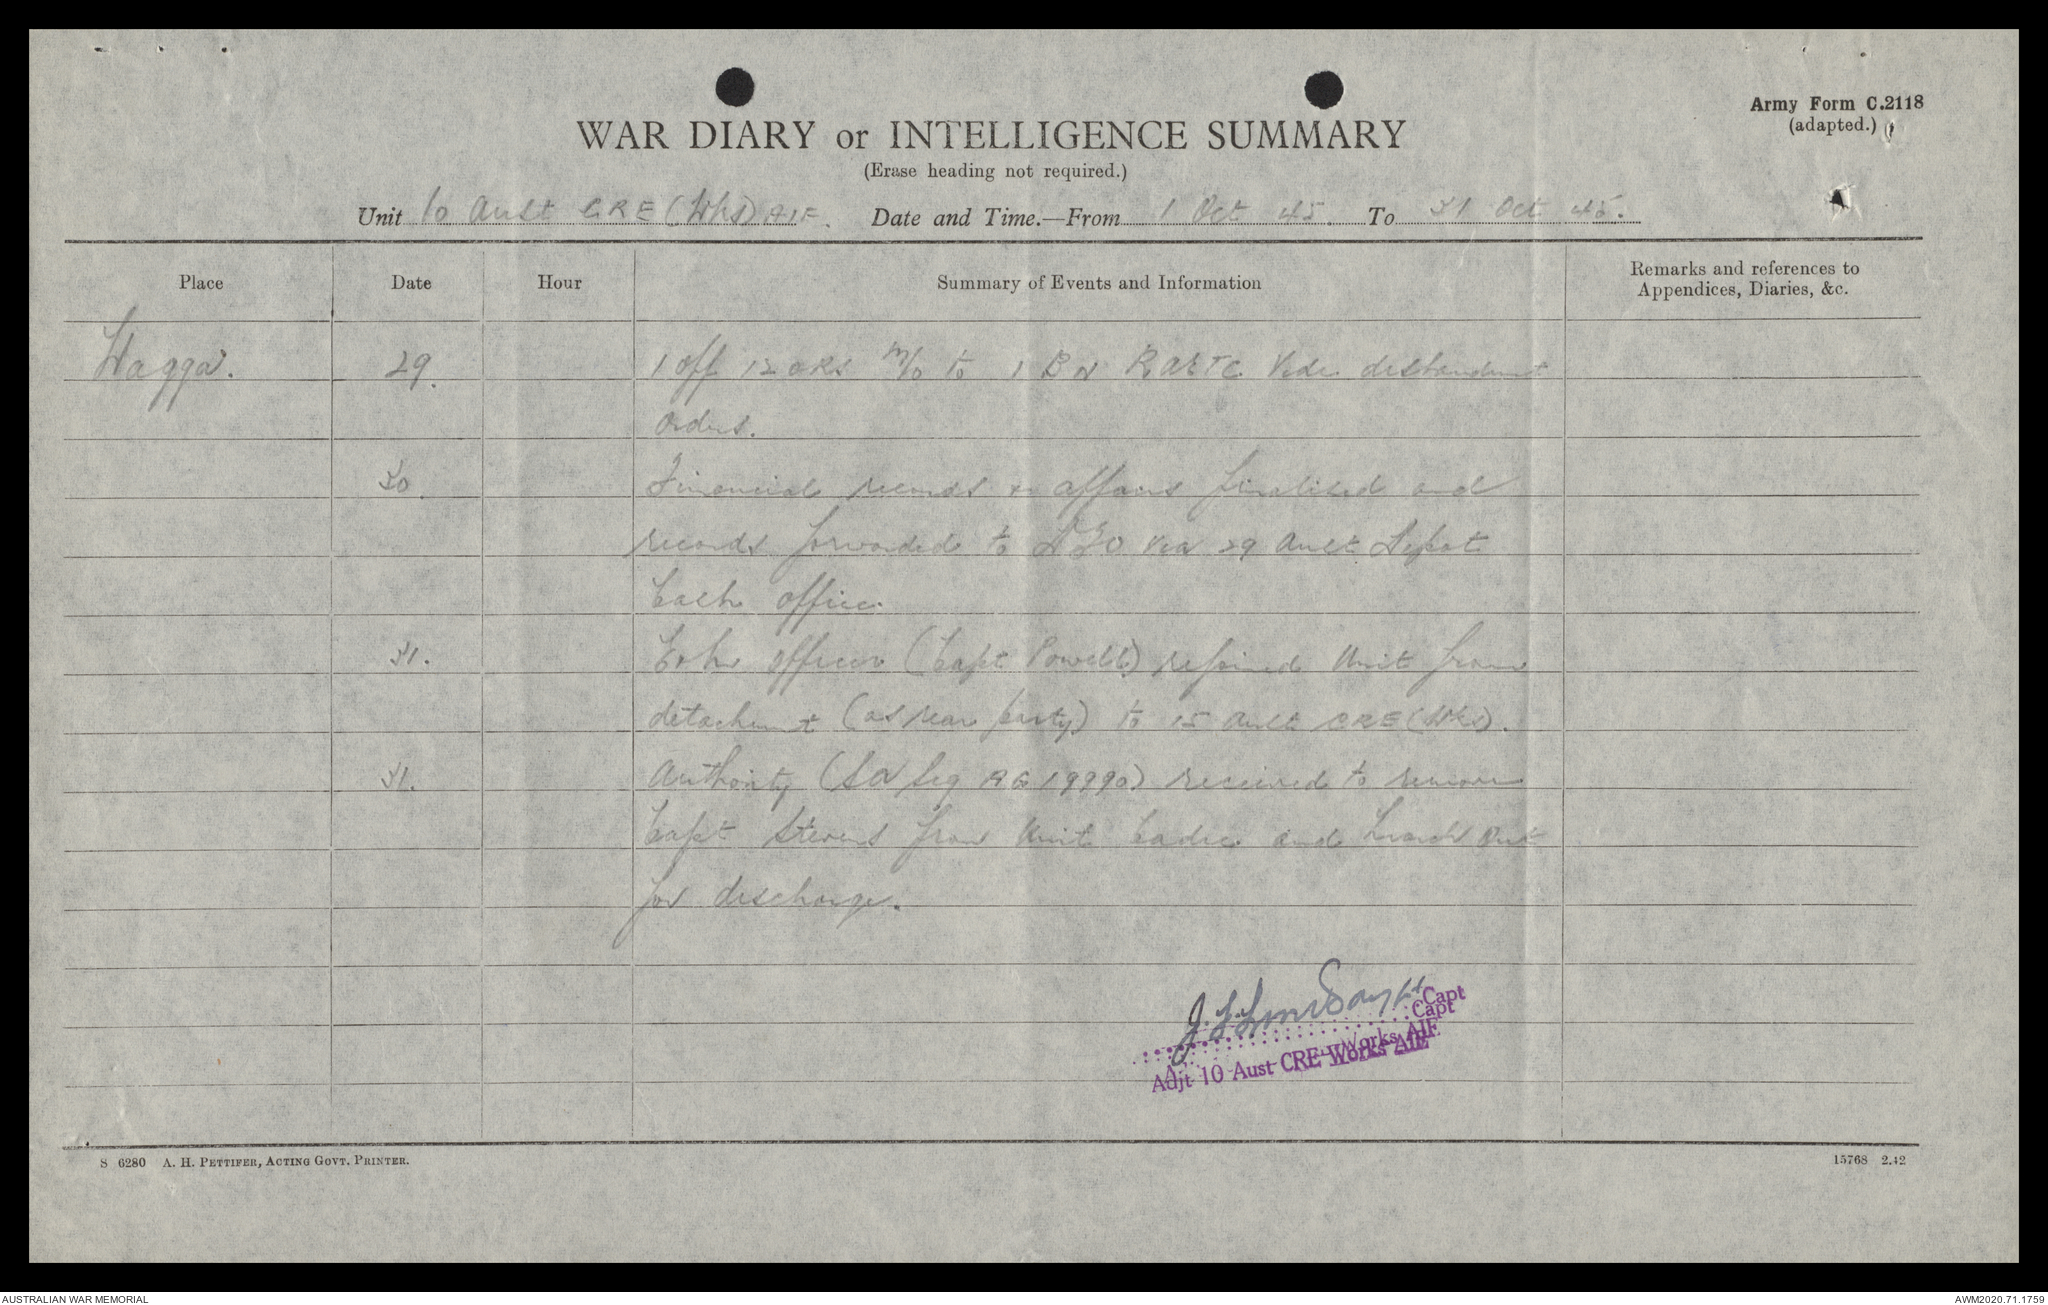 Army Form C.2118
(adapted.)
WAR DIARY or INTELLIGENCE SUMMARY
(Erase heading not required.)
Unit 10 Aust CRE (Wks) AIF. Date and Time.—From 1 Oct 45 To 31 Oct 45.
Place Date Hour Summary of Events and Information Remarks and references to
Appendices, Diaries, &c.
Wagga. 29. 1 Off 12 ORs M/O to 1 BN RAETC Vide disbandment
orders.
30. Financial records & affairs finalised and
records forwarded to DFO via 29 Aust Depot
Cash office.
31. Coy officer (Capt Powell) rejoined Unit from
detachment (as rear party) to 15 Aust CRE (Wks).
31. Authority (Sig AG 19990) received to remove
Capt Stevens from Unit Cadre and March Out
for discharge.
Capt
Capt
Works AIF
Adjt 10 Aust CRE Works AIF
S 6280 A. H. Pettifer, Acting Govt. Printer.
15768 2.42
AUSTRALIAN WAR MEMORIAL
AWM2020.71.1759